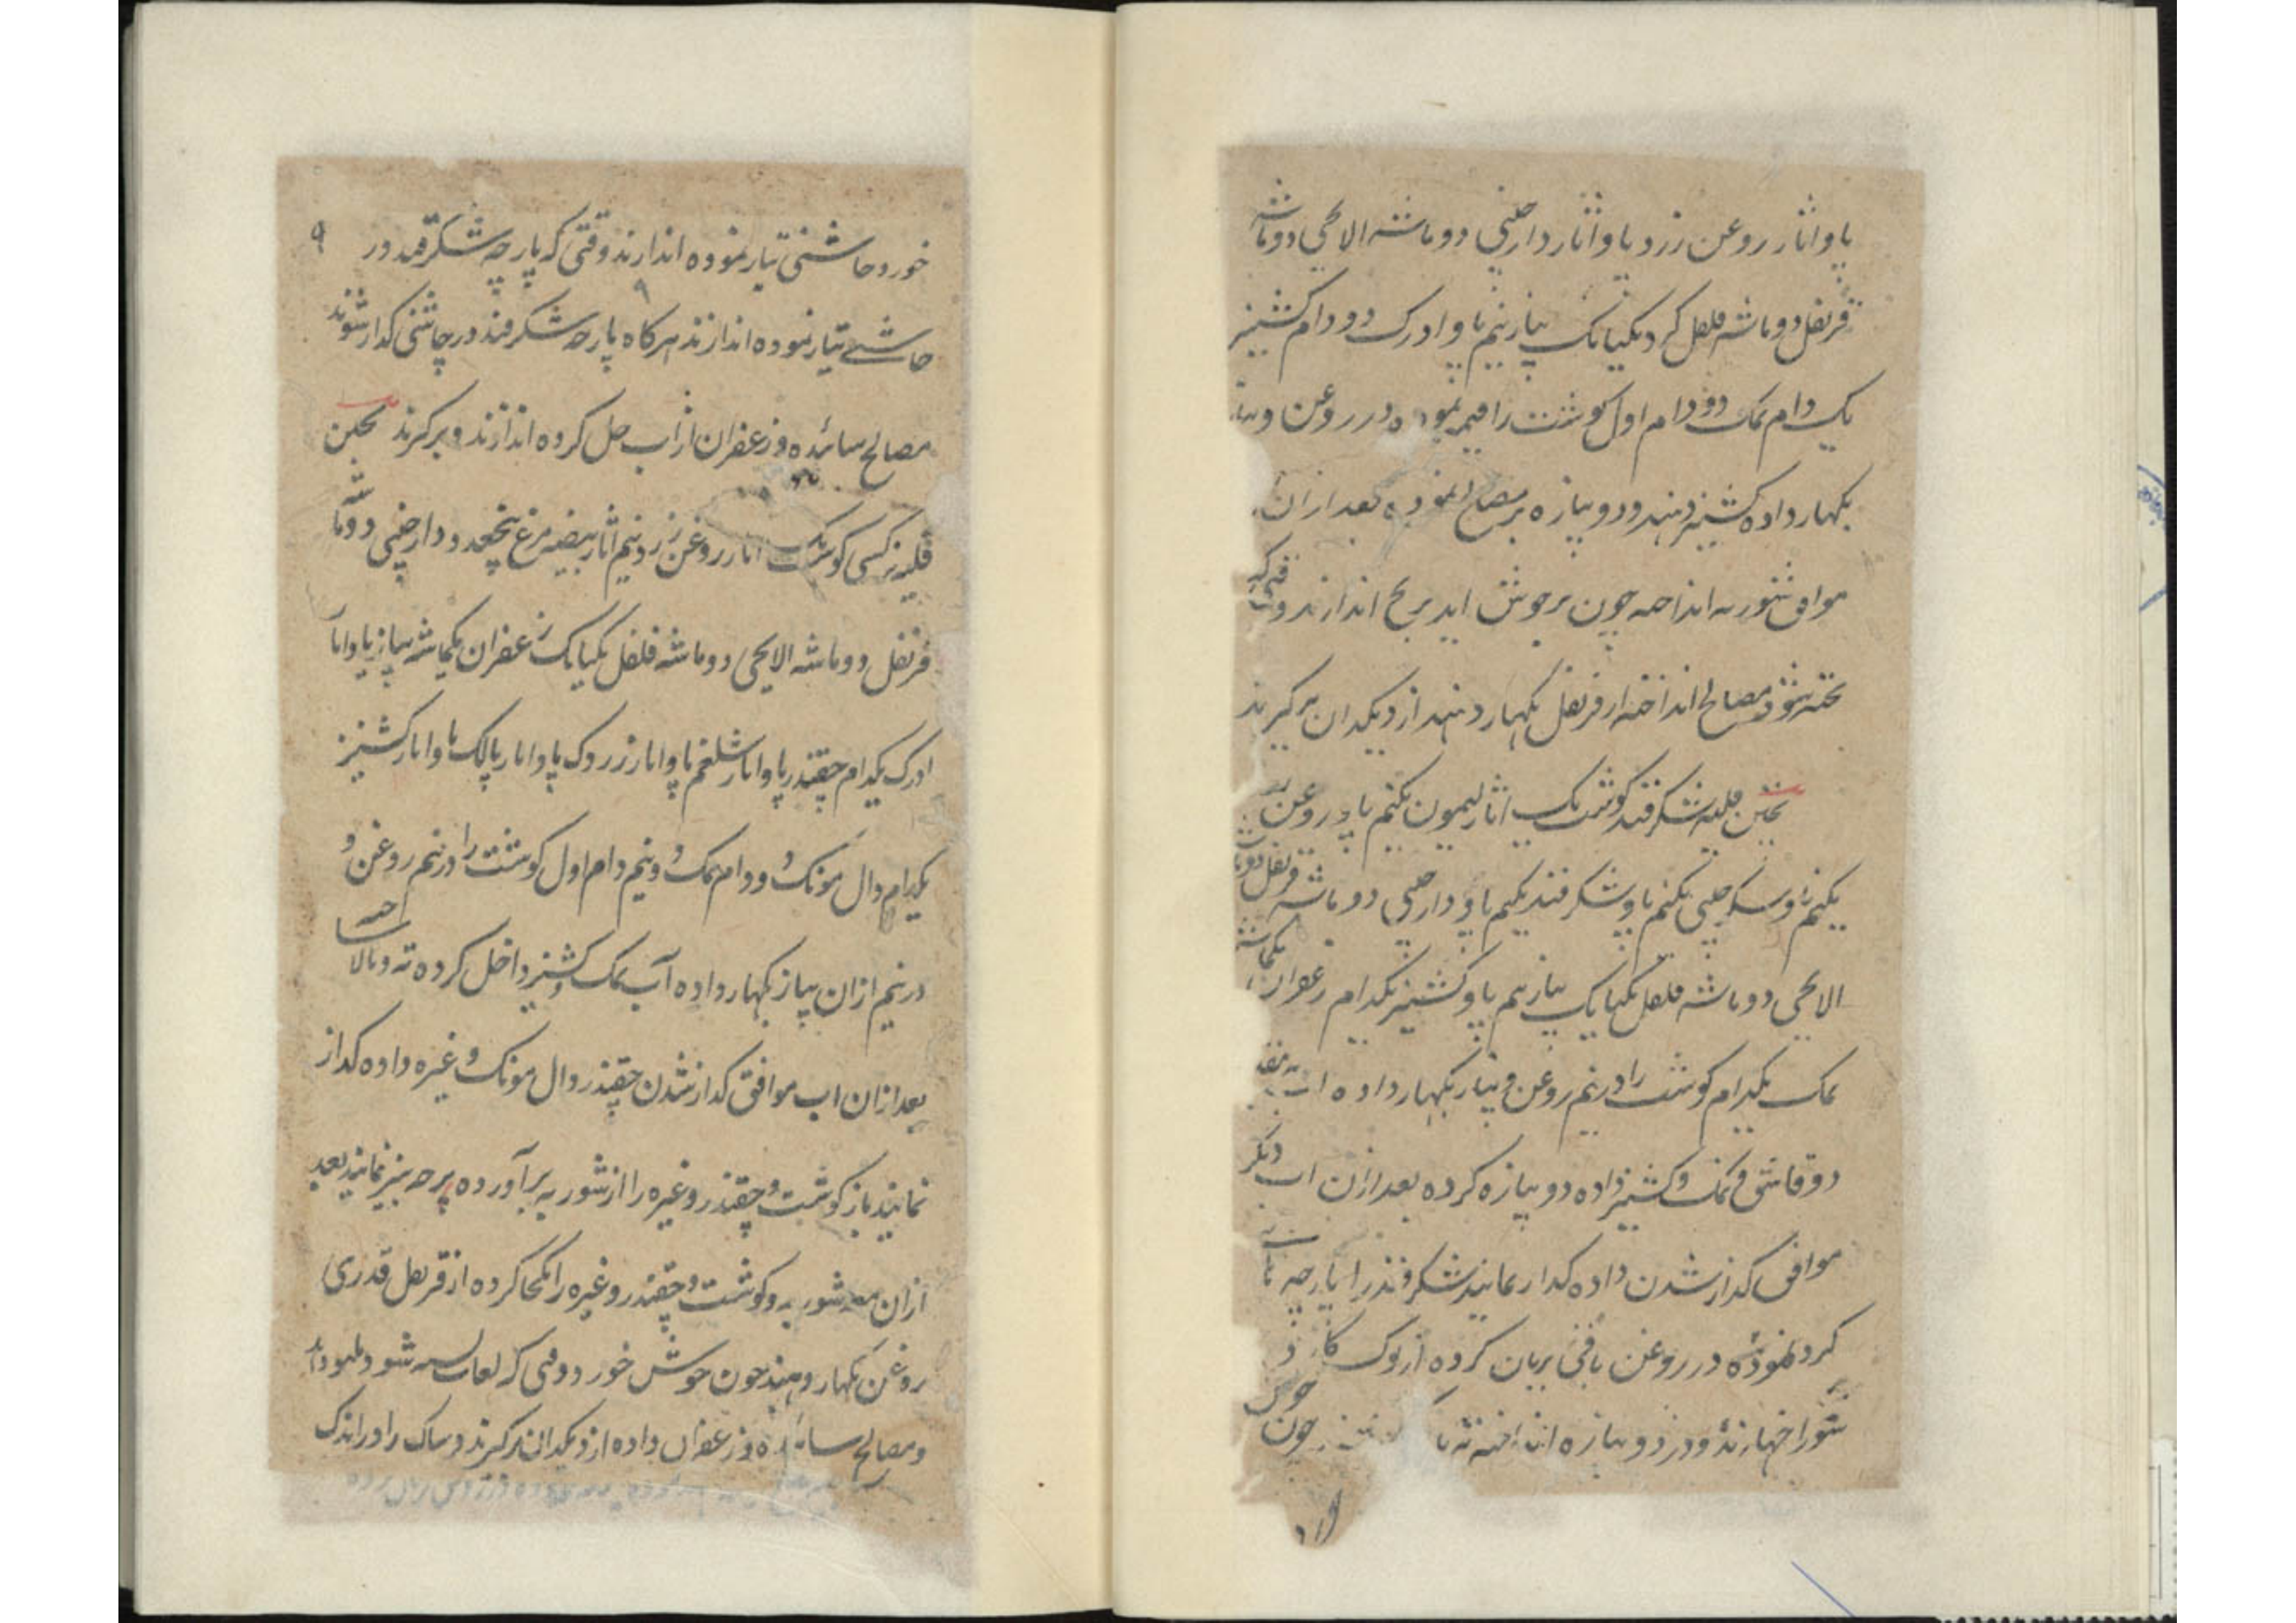 پاو اثار روغن زرد پاو اثار دارچینی دو ماشه الاچی دو ماشه
قرنفل دو ماشه فلفل کرد یکیانک پیاز نیم پاو ادرک دو دام کشنیز
یک دام نمک دو دام اول کوشت را قیمه نموده در روغن و پیاز
بکهار داده کشنیز دهند و دوپیازه بر مصالح نموده بعد ازان
موافق شوربه انداخته چون بر جوش اید برنج اندازند وقتی که
پخته شود مصالح انداخته از قرنفل بکهار دهند از دیکدان برکیرند
پختن قلیه شکرقند کوشت یک اثار لیمون یکنیم پاو روغن
یکنیم پاو شکر چینی یکنیم پاو شکرقند یکنیم پاو دارچینی دو ماشه قرنفل دو ماشه
الاچی دو ماشه فلفل یکیانک پیاز نیم پاو کشنیز یکدام زعفران یکماشه
نمک یکدام کوشت را در نیم روغن و پیاز بکهار داده اب
دو قاشق و نمک و کشنیز داده دوپیازه کرده بعد ازان اب دیکر
موافق کداز شدن داده کداز نمایند شکرقند را پارچه
کرد نموده در روغن باقی بریان کرده از نوک کارد
سوراخها زند و در دوپیازه انداخته چون جوش
خورد چاشنی تیار نموده اندازند وقتی که پارچه شکرقند در
چاشنی تیار نموده اندازند هرکاه پارچه شکرقند در چاشنی کداز شوند
مصالح سائیده و زعفران از اب حل کرده اندازند و برکیرند پختن
قلیه نرکسی کوشت یک اثار روغن زرد نیم اثار بیضه مرغ پنج عدد دارچینی دو ماشه
قرنفل دو ماشه الایچی دو ماشه فلفل یکیانک زعفران یکماشه پیاز پاو اثار
ادرک یکدام چقندر پاو اثار شلغم پاو اثار زردک پاو اثار پالک پاو اثار کشنیز
یکدام دال مونک دو دام نمک دو نیم دام اول کوشت را در نیم روغن و
در نیم ازان پیاز بکهار داده آب نمک و کشنیز داخل کرده ته و بالا ساخته
بعد ازان اب موافق کداز شدن چقندر دال مونک و غیره داده کداز
نمایند باز کوشت و چقندر و غیره را از شوربه برآورده پرچه نیز نمایند بعد
ازان شوربه و کوشت و چقندر و غیره را یکجا کرده از قرنفل قدری
روغن بکهار دهند چون جوش خورد وقتی که لعاب بسته شود
و مصالح سائیده و زعفران داده از دیکدان برکیرند و ساک را در اندک